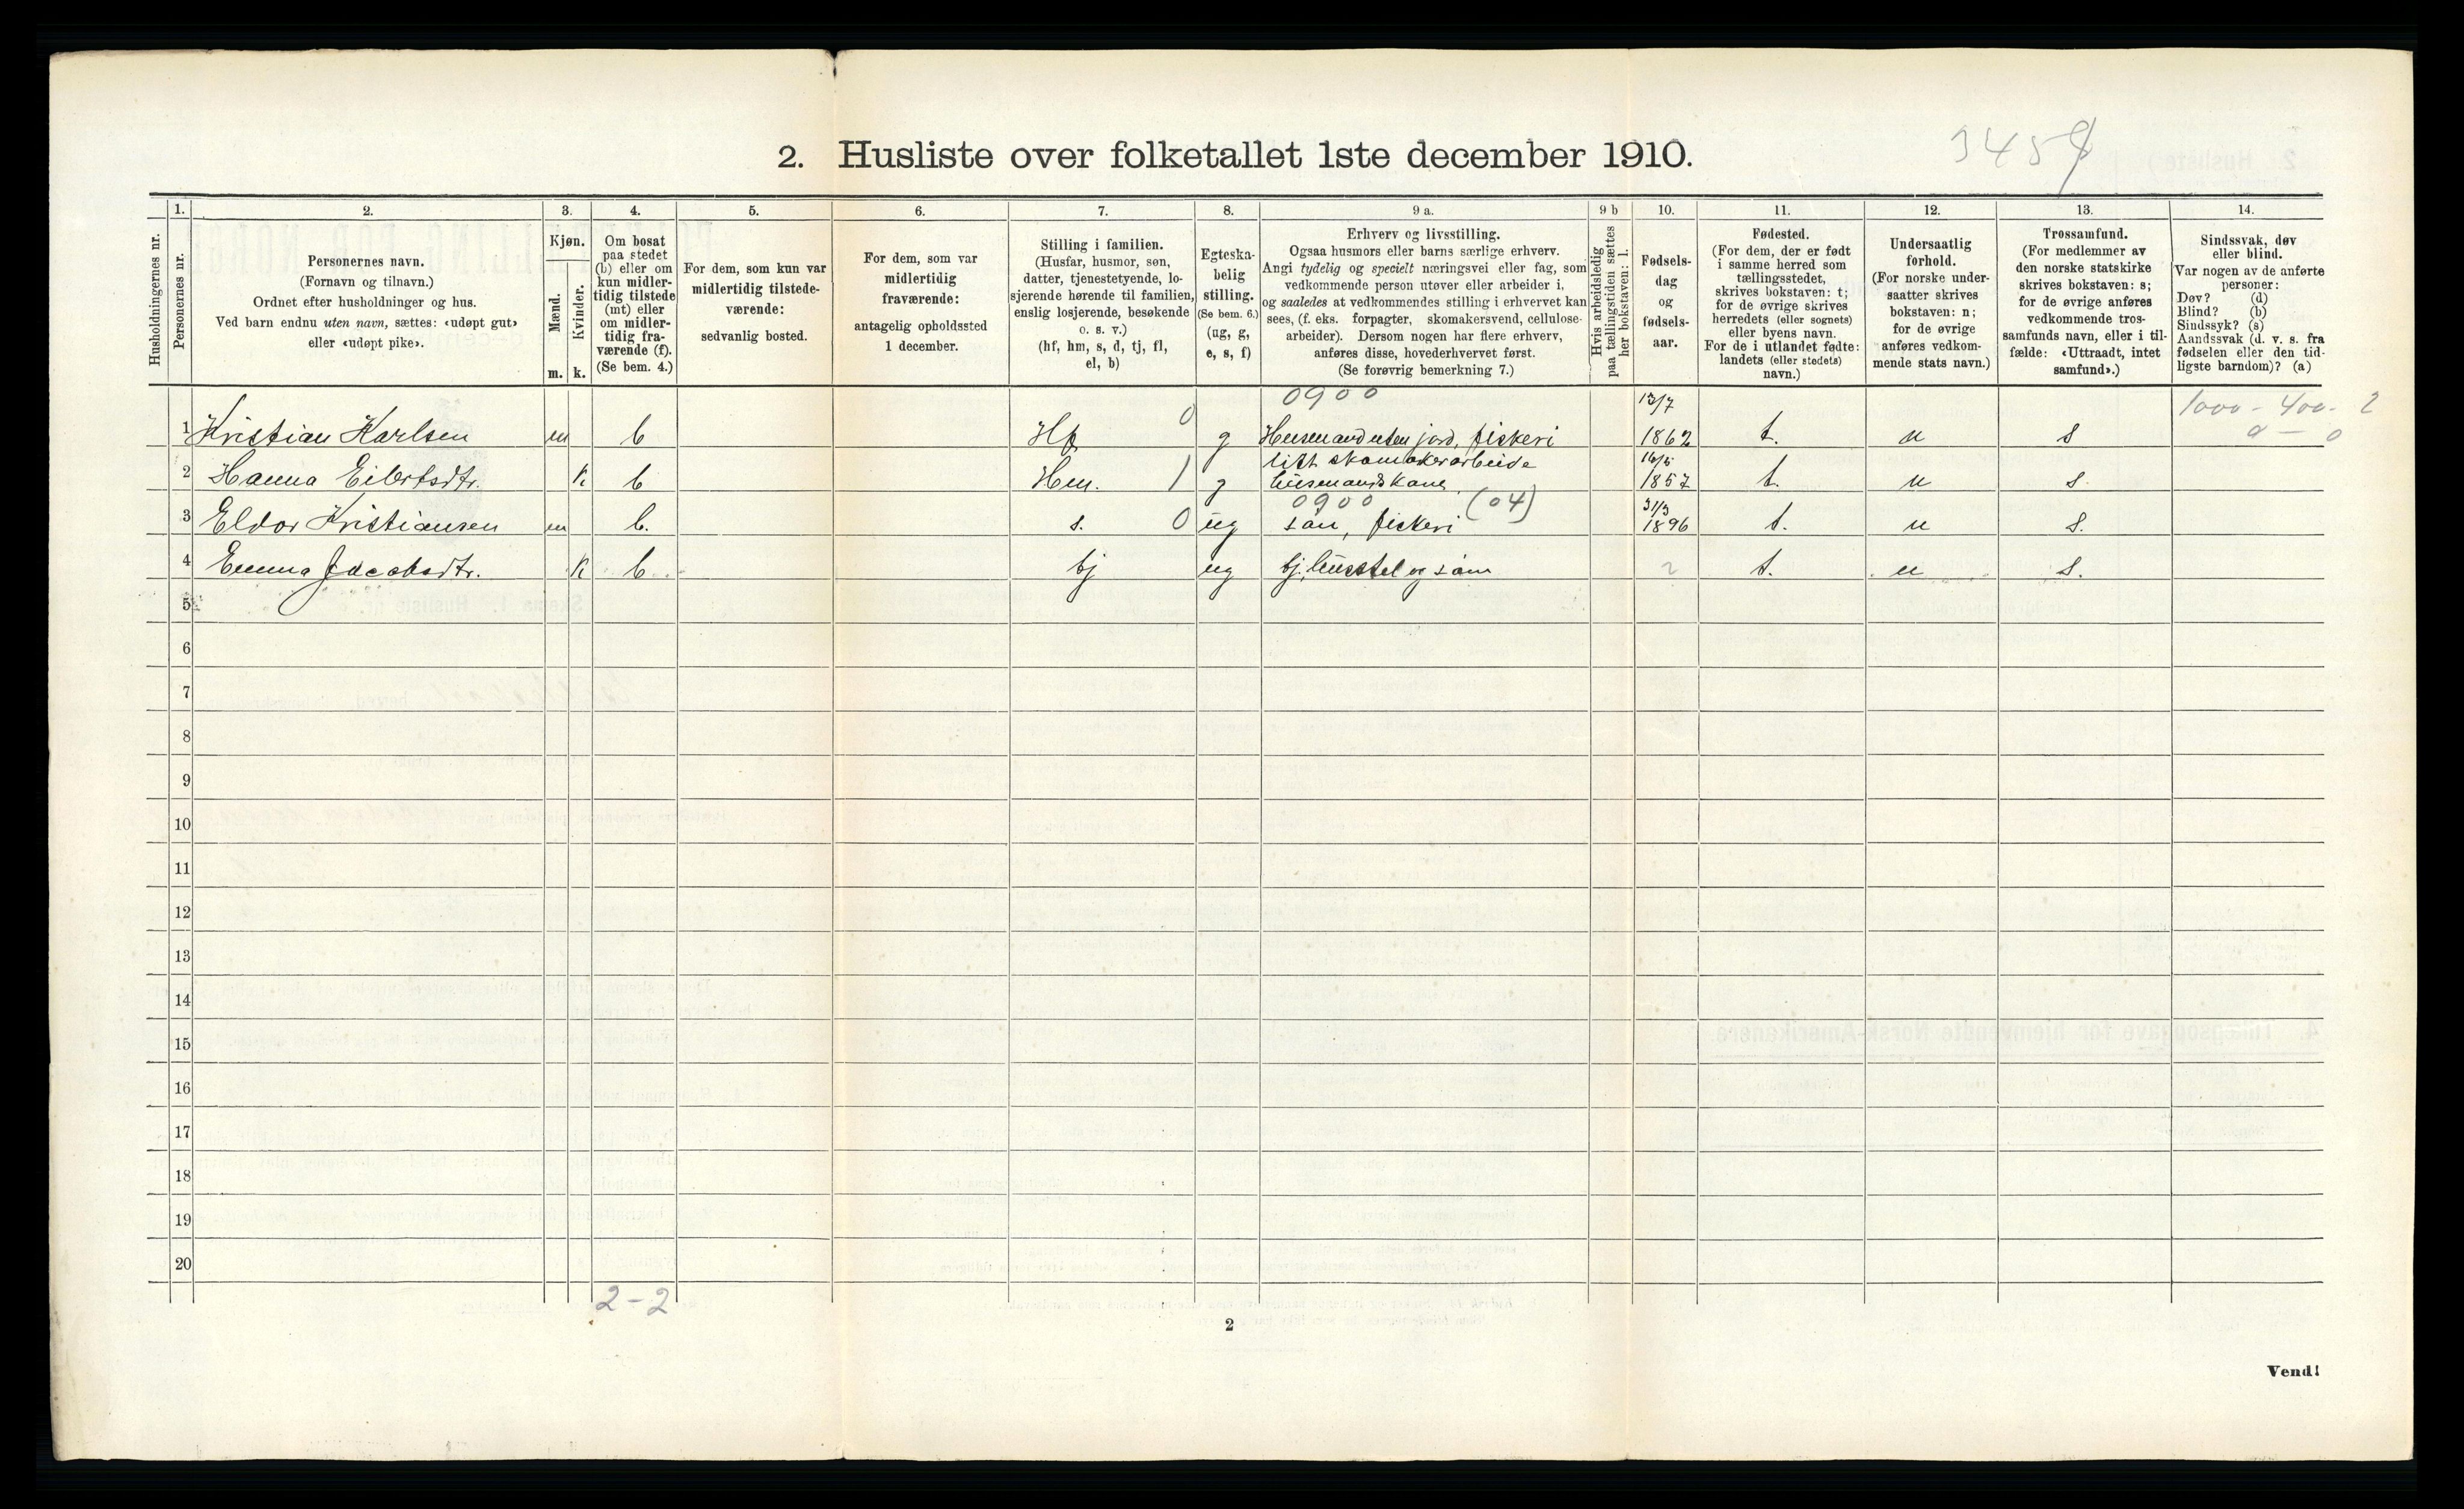 3458
2. Husliste over folketallet 1ste december 1910.
Husholdningernes nr.
1.
Personernes nr.
2.
Personernes navn.
(Fornavn og tilnavn.)
Ordnet efter husholdninger og hus.
Ved barn endnu uten navn, sættes: «udøpt gut»
eller «udøpt pike».
3.
Kjøn.
Mænd.
Kvinder.
m. k.
4.
Om bosat
paa stedet
(b) eller om
kun midler-
tidig tilstede
(mt) eller
om midler-
tidig fra-
værende (f).
(Se bem. 4.)
5.
For dem, som kun var
midlertidig tilstede-
værende:
sedvanlig bosted.
6.
For dem, som var
midlertidig
fraværende:
antagelig opholdssted
1 december.
7.
Stilling i familien.
(Husfar, husmor, søn,
datter, tjenestetyende, lo-
sjerende hørende til familien,
enslig losjerende, besøkende
o. s. v.)
(hf, hm, s, d, tj, fl,
el, b)
8.
Egteska-
belig
stilling.
(Se bem. 6.)
(ug, g,
e, s, f)
9 a.
Erhverv og livsstilling.
Ogsaa husmors eller barns særlige erhverv.
Angi tydelig og specielt næringsvei eller fag, som
vedkommende person utøver eller arbeider i,
og saaledes at vedkommendes stilling i erhvervet kan
sees, (f. eks. forpagter, skomakersvend, cellulose-
arbeider). Dersom nogen har flere erhverv,
anføres disse, hovederhvervet først.
(Se forøvrig bemerkning 7.)
9 b
Hvis arbeidsledig
paa tællingstiden sættes
her bokstaven: l.
10.
Fødsels-
dag
og
fødsels-
aar.
11.
Fødested.
(For dem, der er født
i samme herred som
tællingsstedet,
skrives bokstaven: t;
for de øvrige skrives
herredets (eller sognets)
eller byens navn.
For de i utlandet fødte:
landets (eller stedets)
navn.)
12.
Undersaatlig
forhold.
(For norske under-
saatter skrives
bokstaven: n;
for de øvrige
anføres vedkom-
mende stats navn.)
13.
Trossamfund.
(For medlemmer av
den norske statskirke
skrives bokstaven: s;
for de øvrige anføres
vedkommende tros-
samfunds navn, eller i til-
fælde: «Uttraadt, intet
samfund».)
14.
Sindssvak, døv
eller blind.
Var nogen av de anførte
personer:
Døv? (d)
Blind? (b)
Sindssyk? (s)
Aandssvak (d. v. s. fra
fødselen eller den tid-
ligste barndom)? (a)
0900 1000 - 400 - 2
0 13/7 0 — 0
1 Kristian Karlsen m b Hf g Husmand uten jord, fiskeri 1862 t. n s
litt skomakerarbeide 16/5
2 Hanna Eilertsdtr. k b Hm. 1 g husmandskone 1857 t. n s
0900 (04) 31/3
3 Eldor Kristiansen m b. s. 0 ug søn, fiskeri 1896 t. n s.
4 Emma Jacobsdtr. k b tj ug tj. husstel og søm t. n s.
5
6
7
8
9
10
11
12
13
14
15
16
17
18
19
20
2 - 2
2
Vend!